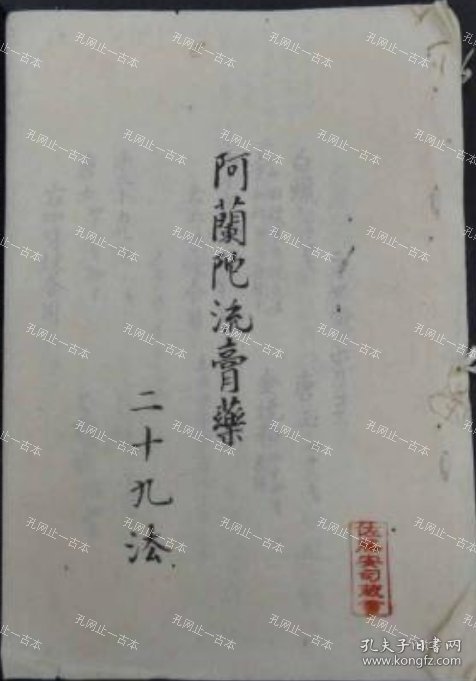 阿蘭陀流膏藥
二十九法
孔网止一古本
孔夫子旧书网
www.kongfz.com